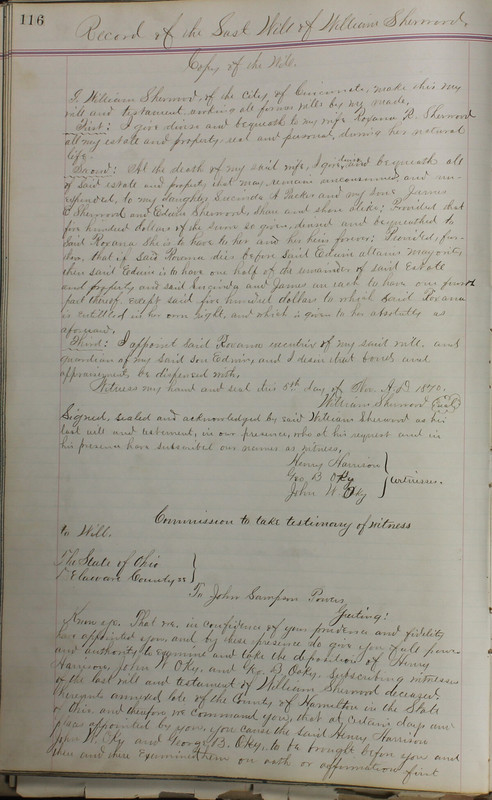 116
Record of the Last Will of William Sherwood
Copy of the Will.
I, William Sherwood, of the City of Cincinnati, make this my
will and testament, revoking all former wills by me made.
First: I give devise and bequeath to my wife Roxana R. Sherwood
all my estate and property, real and personal, during her natural
life.
Second: At the death of my said wife, I give, devise and bequeath all
of said estate and property that may remain unconsumed, and un-
expended, to my daughter Lucinda A and my sons James
E. Sherwood and Edwin Sherwood, share and share alike; Provided that
five hundred dollars of the sum so given, devised and bequeathed to
said Roxana she is to have to her and her heirs forever; Provided, fur-
ther, that if said Roxana dies before said Edwin attains majority
then said Edwin is to have one half of the remainder of said estate
and property and said Lucinda and James are each to have one fourth
part thereof, except said five hundred dollars to which said Roxana
is entitled in her own right, and which is given to her absolutely as
aforesaid.
Third: I appoint said Roxana executrix of my said will, and
guardian of my said son Edwin, and I desire that bond and
appraisement be dispensed with.
Witness my hand and seal this 5th day of Nov. A.D. 1870.
William Sherwood (Seal)
Signed, sealed and acknowledged by said William Sherwood as his
last will and testament, in our presence, who at his request and in
his presence have subscribed our names as witness.
Henry Harrison
Geo. B Oky
John W Oky } Witnesses.
Commission to take testimonary of witness
to Will.
The State of Ohio }
Delaware County ss }
To John Sampson Powers,
Greeting:
Know ye. That we, in confidence of your prudence and fidelity
have appointed you and by these presence do give you full power
and authority to examine and take the deposition of Henry
Harrison, John W. Oky. and Geo. B. Oky. Subscribing witnesses
of the last will and testament of William Sherwood deceased,
hereunto annexed late of the County of Hamilton in the State
of Ohio and therefore we command you, that at certain days and
places appointed by you, you cause the said Henry Harrison
John W. Oky and George B. Oky, to be brought before you and
then and there examine them on oath or affirmation first